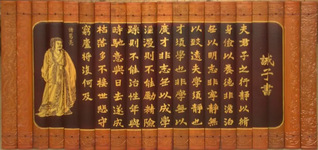 誡子書
夫君子之行靜以修
身儉以養德非澹泊
無以明志非寧靜無
以致遠夫學須靜也
才須學也非學無以
廣才非志無以成學
淫漫則不能勵精險
躁則不能治性年與
時馳意與日去遂成
枯落多不接世悲守
窮廬將復何及
諸葛亮